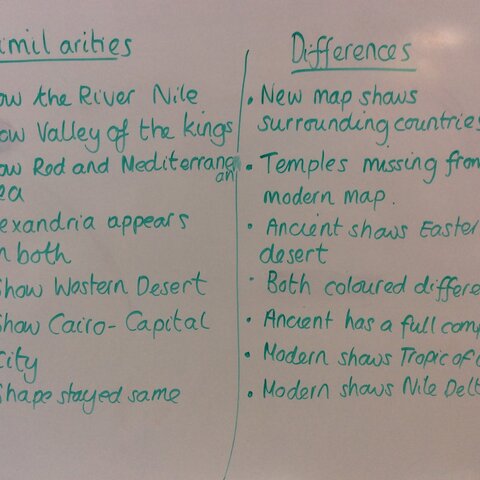 imilarities
ow the River Nile
ow Valley of the kings
ow Red and Mediterranean
ea
exandria appears
n both
show Western Desert
show Cairo - Capital
city
Shape stayed same
Differences
• New map shows
surrounding countries
• Temples missing from
modern map.
• Ancient shows Easter
desert
• Both coloured differe
• Ancient has a full comp
• Modern shows Tropic of
• Modern shows Nile Delt